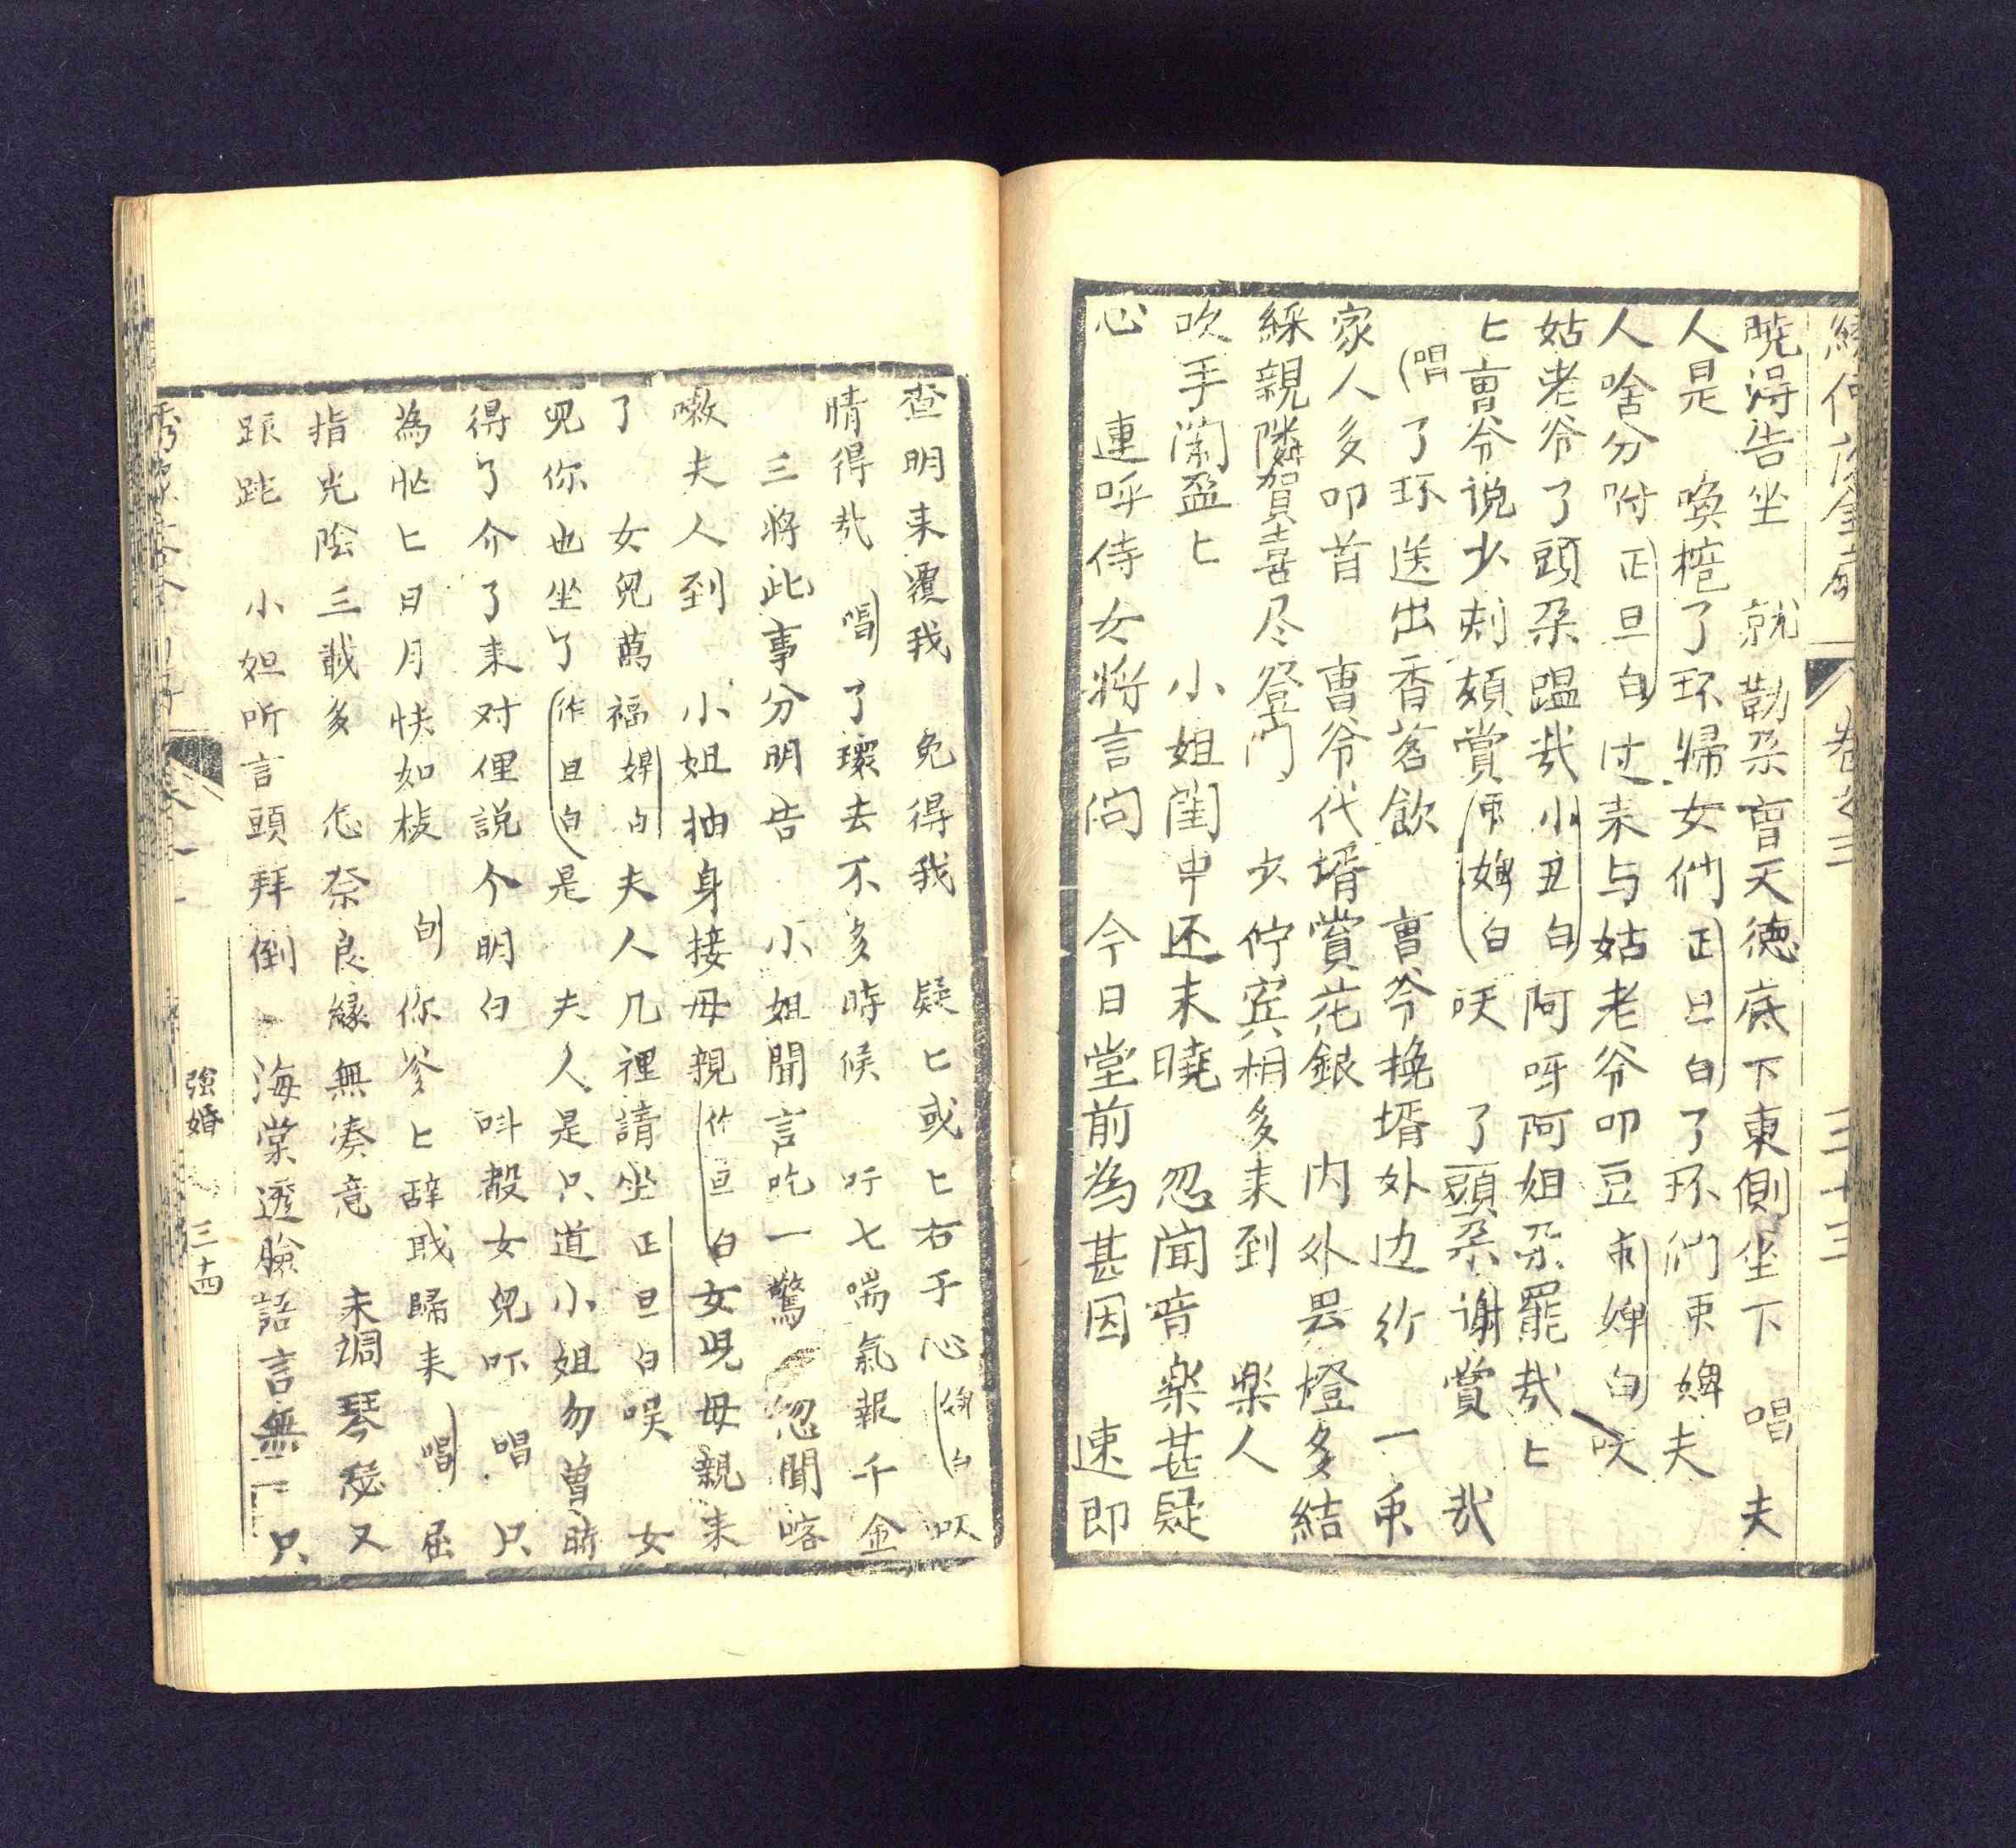 卷之三 三十三
曉得告坐 就勒朶曺天德底下東側坐下 唱 夫
人是 喚梅了环歸女們正旦白了环們 婢 夫
人啥分咐正旦白过来与姑老爷叩豆 婢白
姑老爷了頭朶 哉小丑白阿呀阿姐朶罷哉匕
匕曺爷说少刻頼賞 婢白 了頭朶谢賞 哉
唱 了环送出香茗飲 曺爷挽壻外边行 一
家人多叩首 曺爷代壻賞花銀 内外 燈多結
綵親隣賀喜尽登门 少佇宾相多来到 楽人
吹手閙盈匕 小姐闺中还未曉 忽闻音楽甚疑
心 連呼侍女将言问 今日堂前為甚因 速即
查明来覆我 免得我 疑匕或匕右于心 白
情得哉 唱 了環去不多時候 吁七喘氣報千金
三将此事分明告 小姐聞言吃一驚 忽聞喀
嗽夫人到 小姐抽身接母親 作旦白女児母親来
了 女児萬福 婢白夫人几裡請坐 正旦白 女
児你也坐了作旦白是 夫人是只道小姐勿曽
得了介了来对俚説个明白 呌殺女児吓 唱 只
為忙匕日月快如梭 白 你爹匕辭职歸来 唱 屈
指光陰三載多 怎奈良縁無凑意 未調琴瑟又
踉跄 小姐听言頭拜倒 海棠透臉語言無 只
強婚 三十四